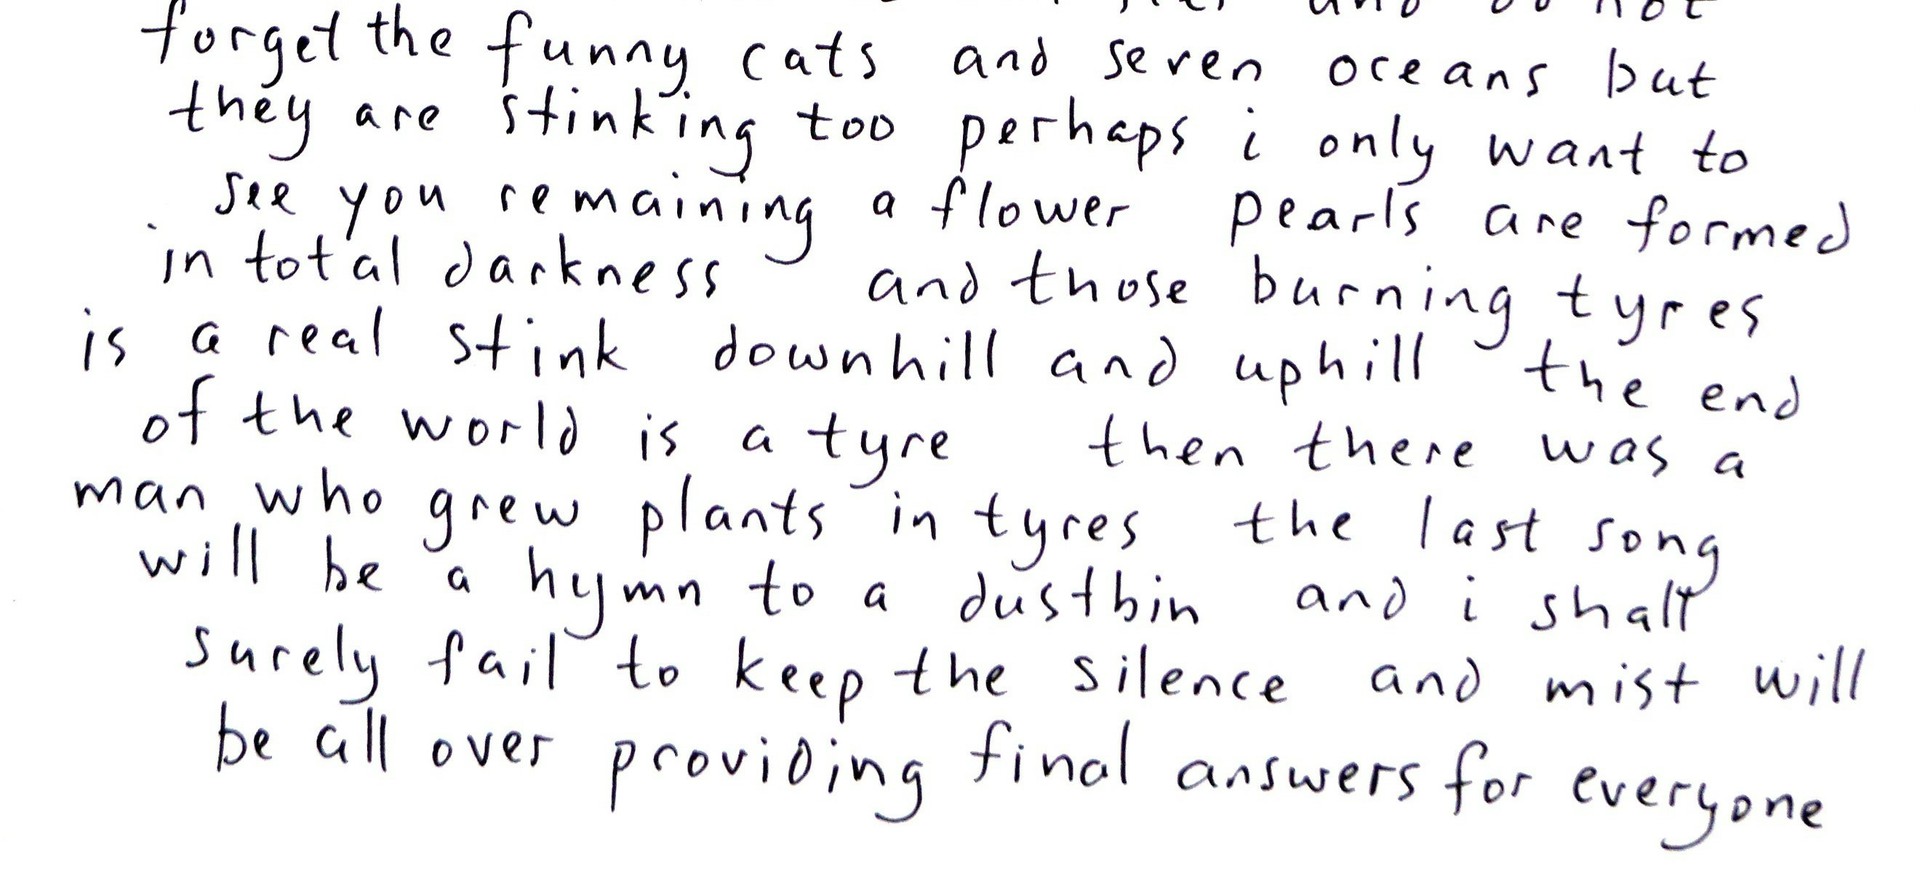 and do not
forget the funny cats and seven oceans but
they are stinking too perhaps i only want to
see you remaining a flower pearls are formed
in total darkness and those burning tyres
is a real stink downhill and uphill the end
of the world is a tyre then there was a
man who grew plants in tyres the last song
will be a hymn to a dustbin and i shall
surely fail to keep the silence and mist will
be all over providing final answers for everyone